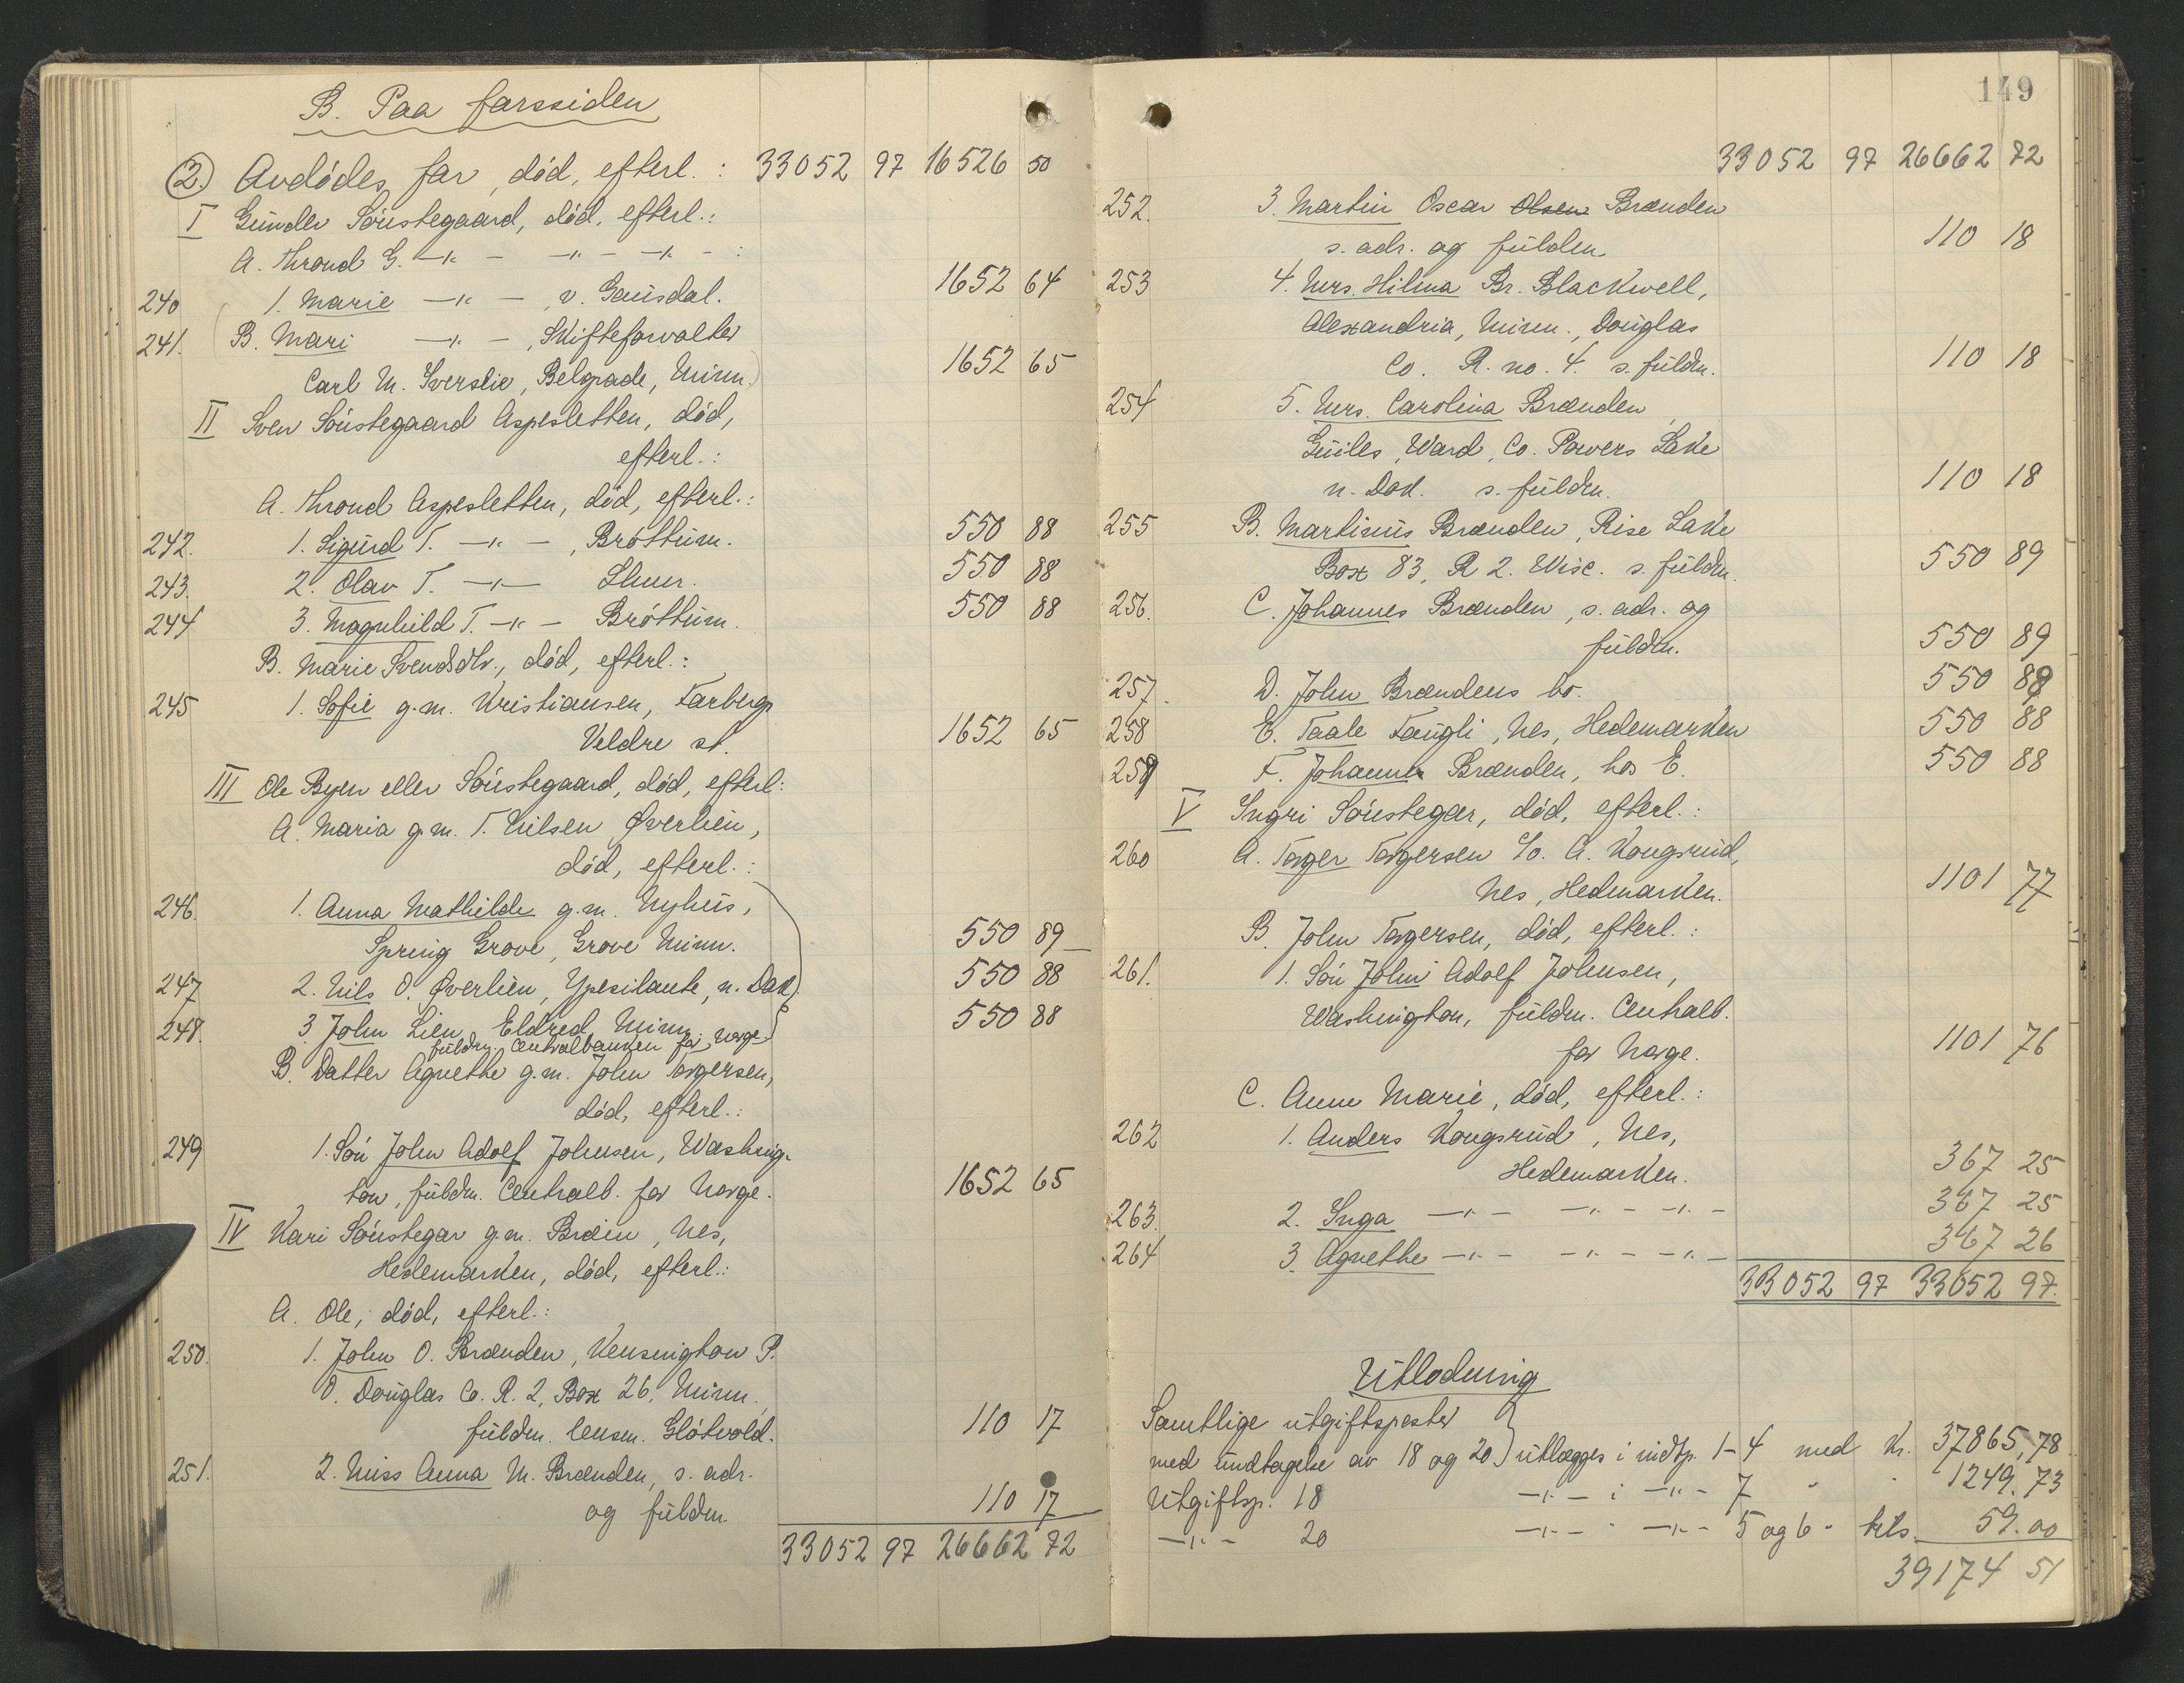 B. Paa farssiden
2. Avdødes far, død, efterl.: 33052 97 16526 50
I Gunder Søustegaard, død, efterl.:
A. Thrond G. -"- -"- -"- :
240 1. Marie -"- , v. Gausdal. 1652 64
241. B. Mari -"- , Skifteforvalter
Carl M. Iverslie, Belgrade, Minn. 1652 65
II Sven Søustegaard Aspesletten, død,
efterl.:
A. Thrond Aspesletten, død, efterl.:
242. 1. Sigurd T. -"- , Brøttum. 550 88
243. 2. Olav T. -"- 550 88
244 3. Magnhild T. -"- Brøttum. 550 88
B. Marie Svendsdtr., død, efterl.:
245 1. Sofie g.m. Kristiansen, Farberg.
Veldre st. 1652 65
III Ole Byen eller Søustegaard, død, efterl:
A. Maria g.m. T. Nilsen Øverlien,
død, efterl.:
246. 1. Anna Mathilde g.m. Nyhus,
Spring Grove, Grove Minn. 550 89
247 2. Nils O. Øverlien, Ypesilante, n. Dak. 550 88
248. 3 John Lien, Eldred, Minn. 550 88
fuldm. Centralbanken for Norge.
B. Datter Agnethe g.m. John Torgersen,
død, efterl.:
249 1. Søn John Adolf Johnsen, Washing-
ton, fuldm. Centralb. for Norge. 1652 65
IV Kari Søustegar g.m. Bræin, Nes,
Hedemarken, død, efterl.:
A. Ole, død, efterl.:
250. 1. John O. Brænden, Kensington P.
O. Douglas Co. R. 2, Box 26, Minn.,
fuldm. lensm. Gløtvold. 110 17
251. 2. Miss Anna M. Brænden, s. adr.
og fuldm. 110 17
33052 97 26662 72
149
33052 97 26662 72
252. 3. Martin Oscar Olsen Brænden
s. adr. og fuldm. 110 18
253 4. Mrs. Hilma Br. Blackwell,
Alexandria, Minn., Douglas
Co. R. no. 4. s. fuldm. 110 18
254 5. Mrs. Carolina Brænden,
Guiles, Ward, Co. Powers Lake
n. Dak. s. fuldm. 110 18
255 B. Martinus Brænden, Rise Lake
Box 83, R 2. Wisc. s. fuldm. 550 89
256. C. Johannes Brænden, s. adr. og
fuldm. 550 89
257. D. John Brændens bo. 550 88
258 E. Taale Faugli, Nes, Hedemarken 550 88
259 F. Johanne Brænden, hos E. 550 88
V Ingri Søustegar, død, efterl.:
260 A. Torger Torgersen c/o. A. Kongsrud,
Nes, Hedemarken. 1101 77
B. John Torgersen, død, efterl.:
261. 1. Søn John Adolf Johnsen,
Washington, fuldm. Centralb.
for Norge. 1101 76
C. Anne Marie, død, efterl.:
262 1. Anders Kongsrud, Nes,
Hedemarken. 367 25
263. 2. Inga -"- -"- -"- 367 25
264 3. Agnethe -"- -"- -"- 367 26
33052 97 33052 97.
Utlodning
Samtlige utgiftsposter
med undtagelse av 18 og 20 } utlægges i indtp. 1-4 med Kr. 37865,78
Utgiftsp. 18 -"- i -"- 7 " " 1249.73
-"- 20 -"- " -"- 5 og 6 " tils. 59.00
39174 51